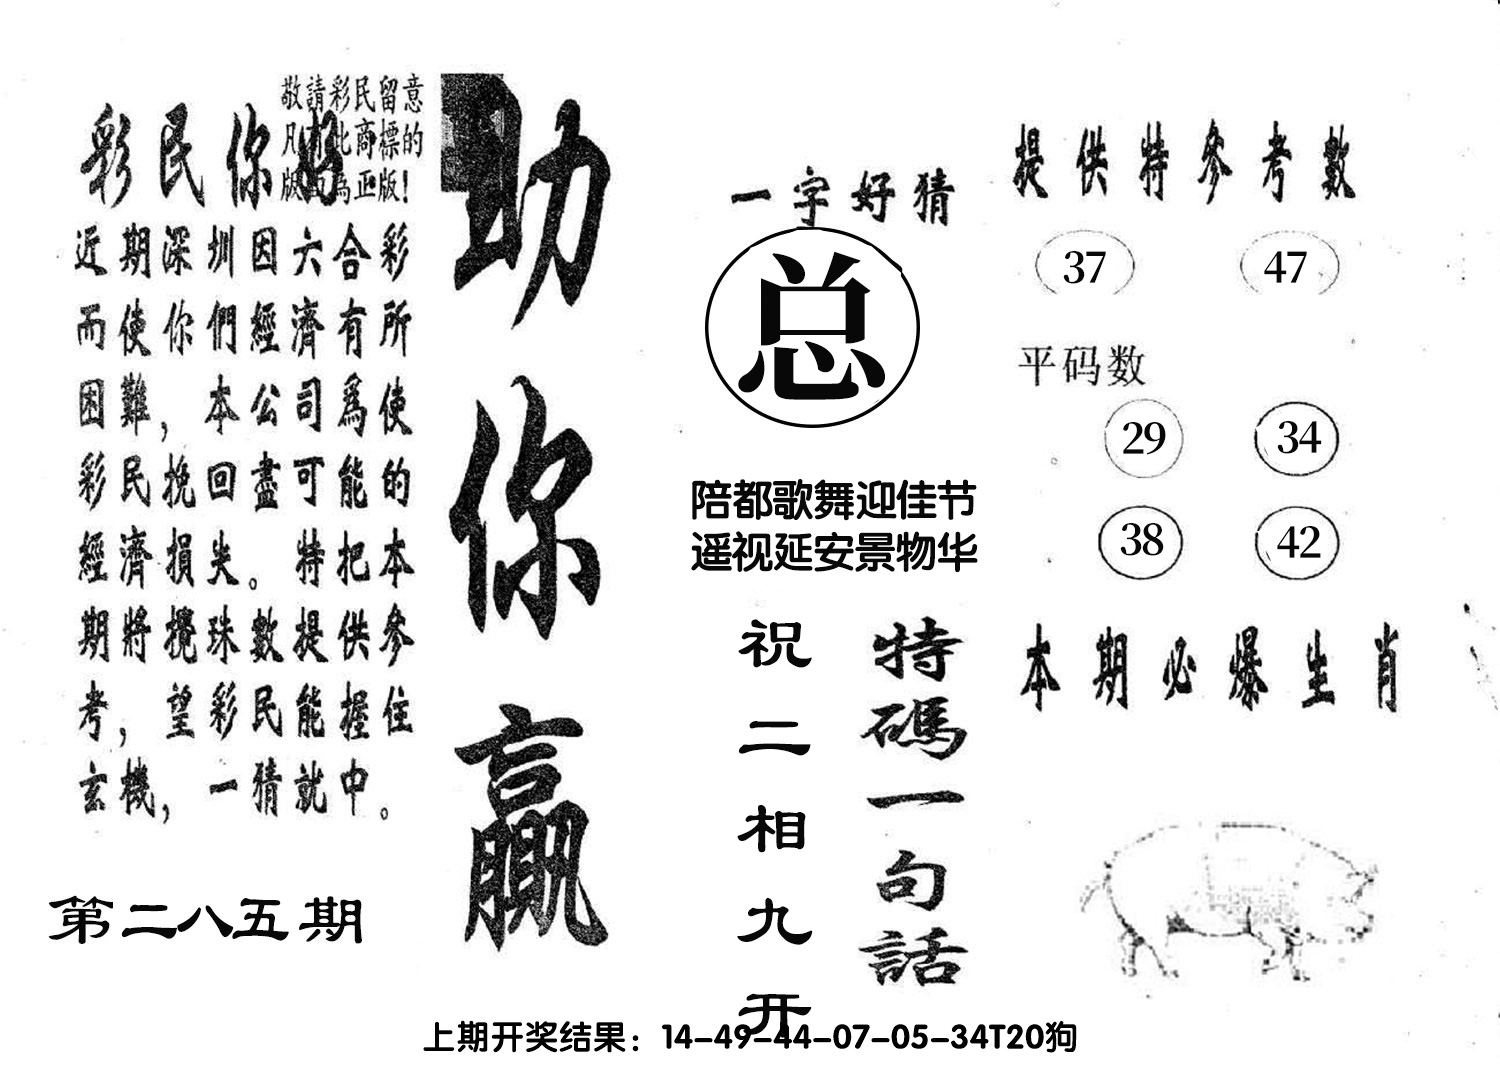 敬請彩民留意
凡有此商標的
版面為正版!
彩民你好
近期深圳因六合彩
而使你們經濟有所
困難，本公司爲使
彩民挽回盡可能的
經濟損失。特把本
期將攪珠數提供參
考，望彩民能握住
玄機，一猜就中。
第二八五期
助你贏
一字好猜
总
陪都歌舞迎佳节
遥视延安景物华
特碼一句話
祝二相九开
提供特參考數
37 47
平码数
29 34
38 42
本期必爆生肖
上期开奖结果：14-49-44-07-05-34T20狗